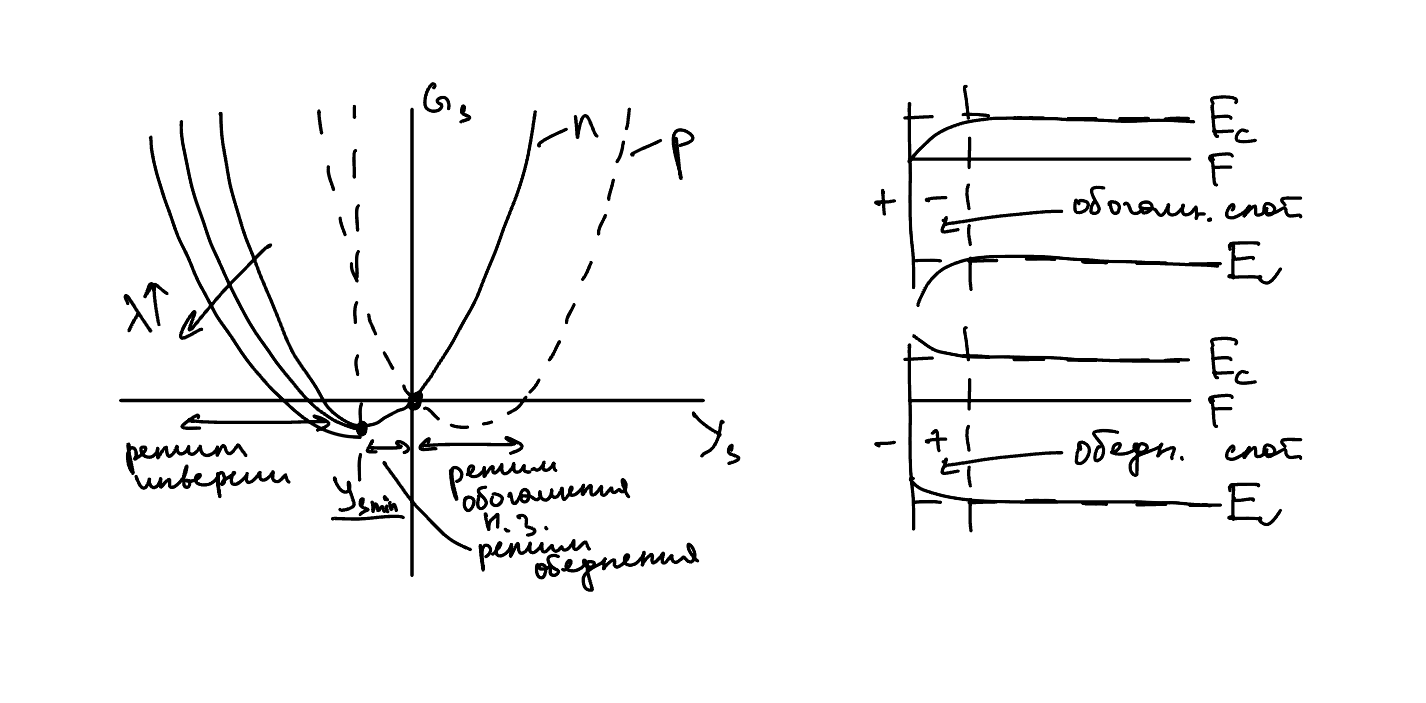 Gₛ
n
p
λ↑
режим
инверсии
yₛ min
yₛ
режим
обогащения
н.з.
режим
обеднения
E_c
F
+ -
обогащ. слой
E_v
E_c
F
- +
обедн. слой
E_v